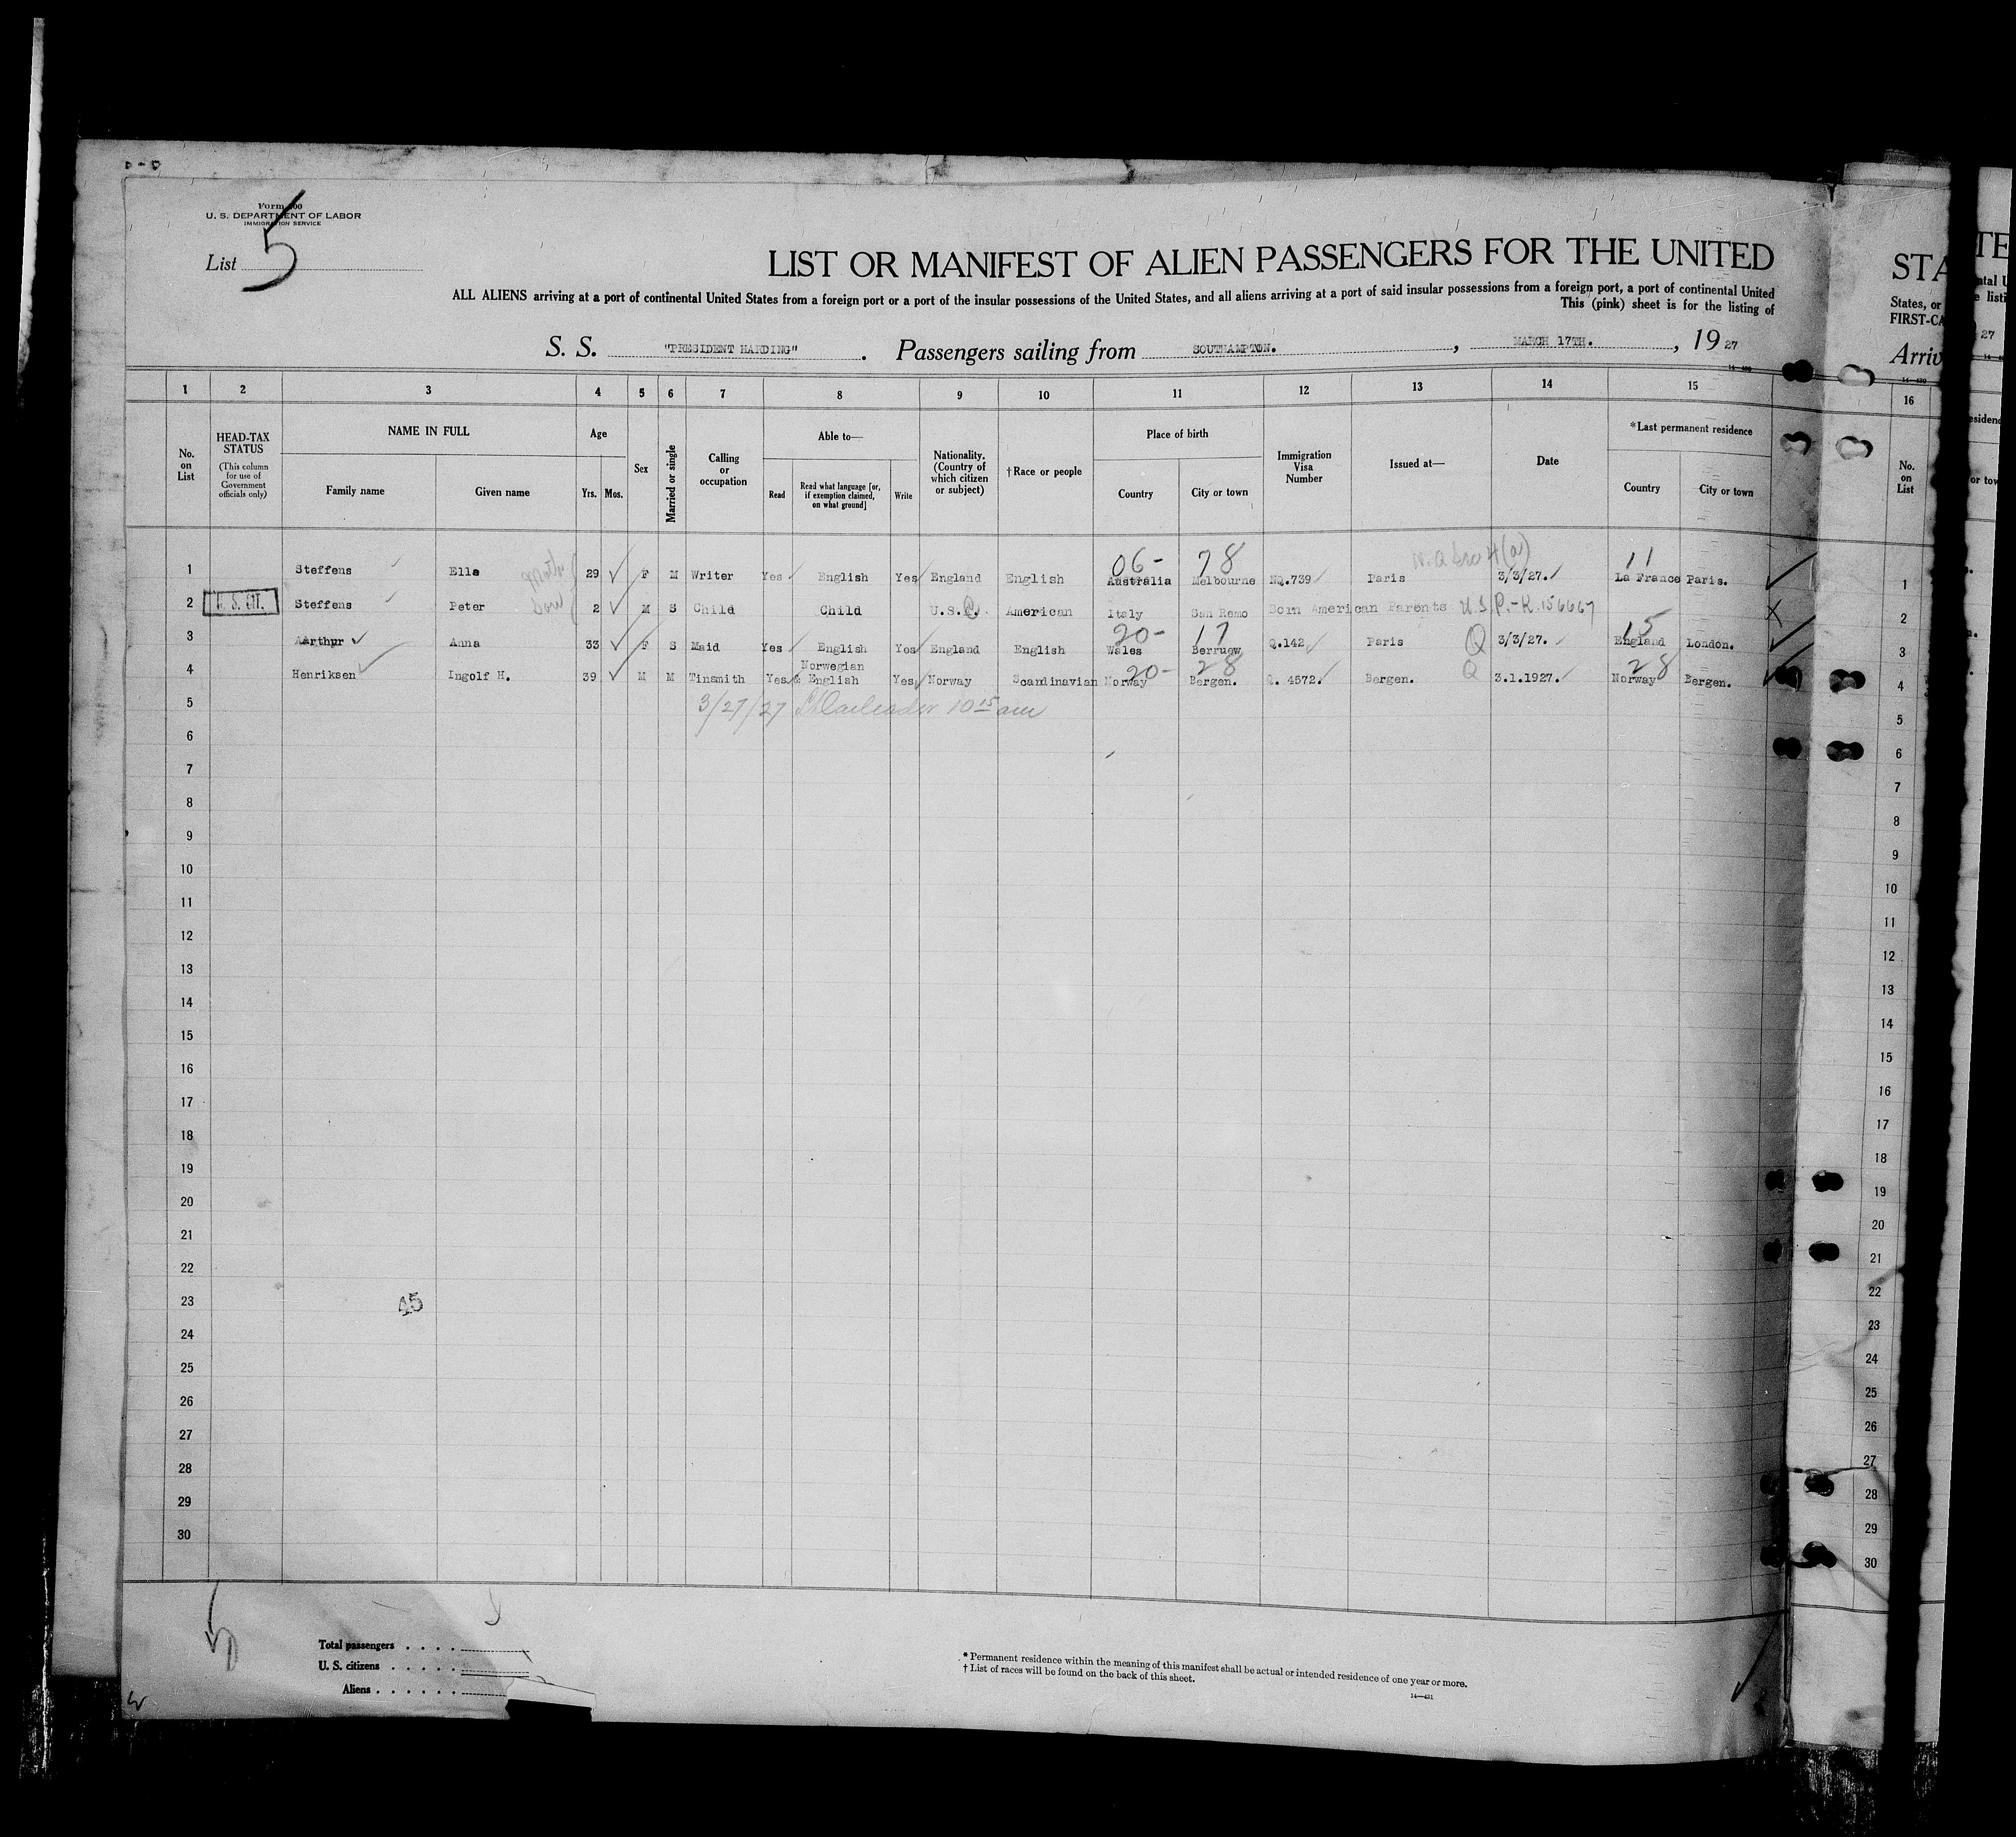 Form 500
U. S. DEPARTMENT OF LABOR
IMMIGRATION SERVICE
List 5
LIST OR MANIFEST OF ALIEN PASSENGERS FOR THE UNITED
ALL ALIENS arriving at a port of continental United States from a foreign port or a port of the insular possessions of the United States, and all aliens arriving at a port of said insular possessions from a foreign port, a port of continental United
This (pink) sheet is for the listing of
S. S. "PRESIDENT HARDING". Passengers sailing from SOUTHAMPTON., MARCH 17TH., 19 27
1 2 3 4 5 6 7 8 9 10 11 12 13 14 15
No. on List
HEAD-TAX STATUS (This column for use of Government officials only)
NAME IN FULL Family name Given name
Age Yrs. Mos.
Sex
Married or single
Calling or occupation
Able to— Read Read what language [or, if exemption claimed, on what ground] Write
Nationality. (Country of which citizen or subject)
†Race or people
Place of birth Country City or town
Immigration Visa Number
Issued at—
Date
*Last permanent residence Country City or town
06- 78 11
1 Steffens Ella 29 F M Writer Yes English Yes England English Australia Melbourne NQ.739 Paris 3/3/27. La France Paris.
2 Steffens Peter Son 2 M S Child Child U.S.A. American Italy San Remo Born American Parents U.S.P.-R.156667
20- 17 15
3 Aarthur Anna 33 F S Maid Yes English Yes England English Wales Berruew Q.142 Paris Q 3/3/27. England London.
20- 28 28
4 Henriksen Ingolf H. 39 M M Tinsmith Yes Norwegian & English Yes Norway Scandinavian Norway Bergen. Q. 4572. Bergen. Q 3.1.1927. Norway Bergen.
5 3/27/27 10 15 am
6
7
8
9
10
11
12
13
14
15
16
17
18
19
20
21
22
23 45
24
25
26
27
28
29
30
Total passengers
U. S. citizens
Aliens
* Permanent residence within the meaning of this manifest shall be actual or intended residence of one year or more.
† List of races will be found on the back of this sheet.
14—431
STA
States, or
FIRST-CA
Arriv
16
No. on List
1
2
3
4
5
6
7
8
9
10
11
12
13
14
15
16
17
18
19
20
21
22
23
24
25
26
27
28
29
30
TE
27